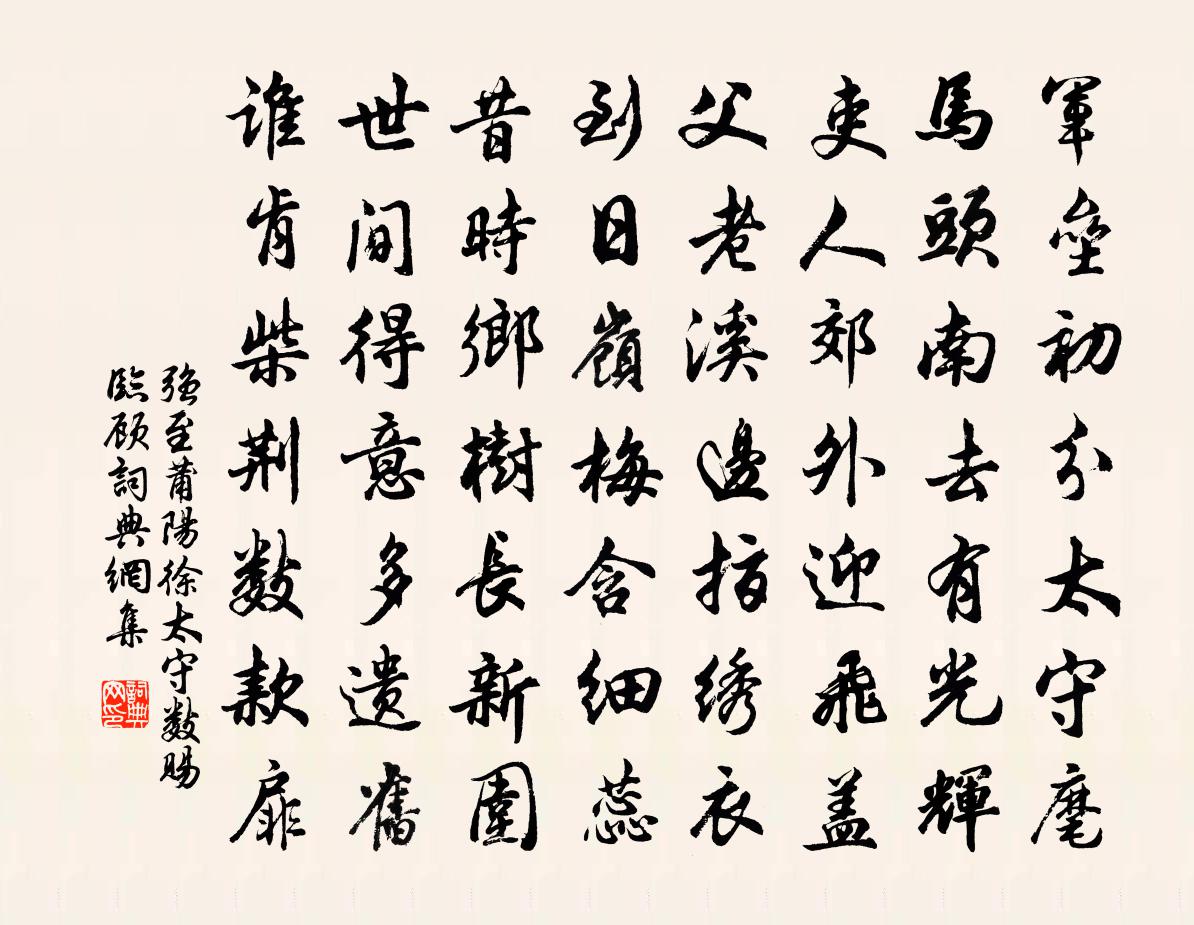 軍壘初分太守麾
馬頭南去有光輝
吏人郊外迎飛盖
父老溪邊指绣衣
到日嶺梅含细蕊
昔時鄉樹長新圍
世间得意多遗舊
谁肯柴荆数款扉
强至莆陽徐太守数賜
臨顾詞典網集
詞典
网印